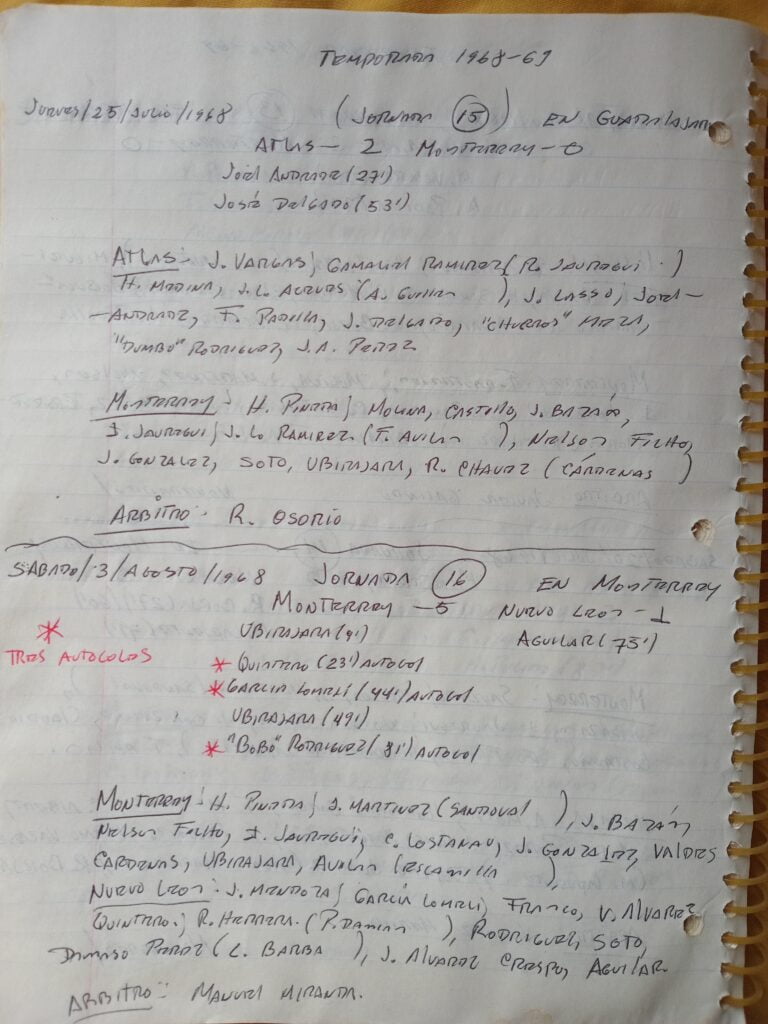 TEMPORADA 1968-69
JUEVES/25/JULIO/1968 (JORNADA 15) EN GUADALAJARA
ATLAS - 2 MONTERREY - 0
JOEL ANDRADE (27')
JOSÉ DELGADO (53')
ATLAS: J. VARGAS; GAMALIEL RAMIREZ (R. JAUREGUI)
H. MEDINA, J.L. ACEVES (A. GUILLEN), J. LASSO, JOEL-
-ANDRADE, F. PADILLA, J. DELGADO, "CHURROS" MEZA,
"DUMBO" RODRIGUEZ, J.A. PEREZ
MONTERREY: H. PINEDA; MOLINA, CASTILLO, J. BAZÁN,
I. JAUREGUI; J.L. RAMIREZ (F. AVILAN), NELSON FILHO,
J. GONZALEZ, SOTO, UBIRAJARA, R. CHAVEZ (CÁRDENAS)
ARBITRO: R. OSORIO
SABADO/3/AGOSTO/1968 JORNADA 16 EN MONTERREY
MONTERREY - 5 NUEVO LEON - 1
* UBIRAJARA (9') AGUILAR (75')
TRES AUTOGOLES
* QUINTERO (23') AUTOGOL
* GARCIA LOMELÍ (44') AUTOGOL
UBIRAJARA (49')
* "BOBO" RODRIGUEZ (81') AUTOGOL
MONTERREY: H. PINEDA; J. MARTINEZ (SANDOVAL), J. BAZÁN,
NELSON FILHO, I. JAUREGUI, C. LOSTANAU, J. GONZALEZ, VALDES
CARDENAS, UBIRAJARA, AVILAN (ESCAMILLA),
NUEVO LEON: J. MENDOZA; GARCÍA LOMELI, FRANCO, V. ALVAREZ
QUINTERO; R. HERRERA (P. DAMIAN), RODRIGUEZ, SOTO,
DIONISO PEREZ (L. BARBA), J. ALVAREZ CRESPO, AGUILAR.
ARBITRO: MANUEL MIRANDA.